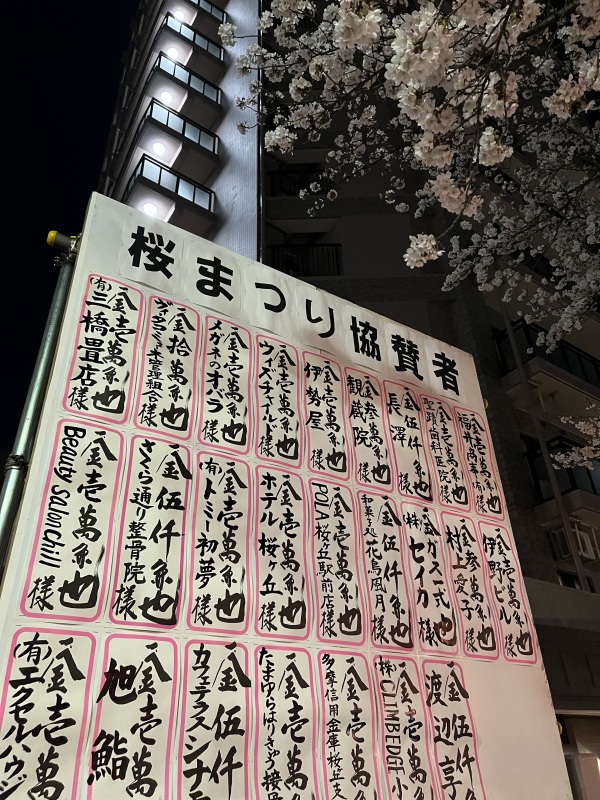 桜まつり協賛者
金壱萬円也
金壱萬円也
聖蹟歯科医院様
金伍仟円也
長澤様
金参萬円也
観蔵院様
金壱萬円也
伊勢屋様
金壱萬円也
ウィズチャイルド様
金壱萬円也
メガネの
様
金拾萬円也
管理組合様
金壱萬円也
(有)三橋畳店様
金壱萬円也
伊野ビル様
金参萬円也
村上愛子様
金ガス一式也
(株)セイカ様
金伍仟円也
和菓子処花鳥風月様
金壱萬円也
POLA桜ヶ丘駅前店様
金壱萬円也
ホテル桜ヶ丘様
金壱萬円也
(有)トミー初夢様
金伍仟円也
さくら通り整骨院様
金壱萬円也
Beauty Salon Chill様
金伍仟円
渡辺亨
金壱萬円
(株)CLIMBEDGE小
金壱萬円
多摩信用金庫桜丘支
金壱萬円
たまゆらはりきゅう接骨
金伍仟円
カフェテラスシナ
金壱萬
旭鮨
金壱萬
(有)エクセルハウジ